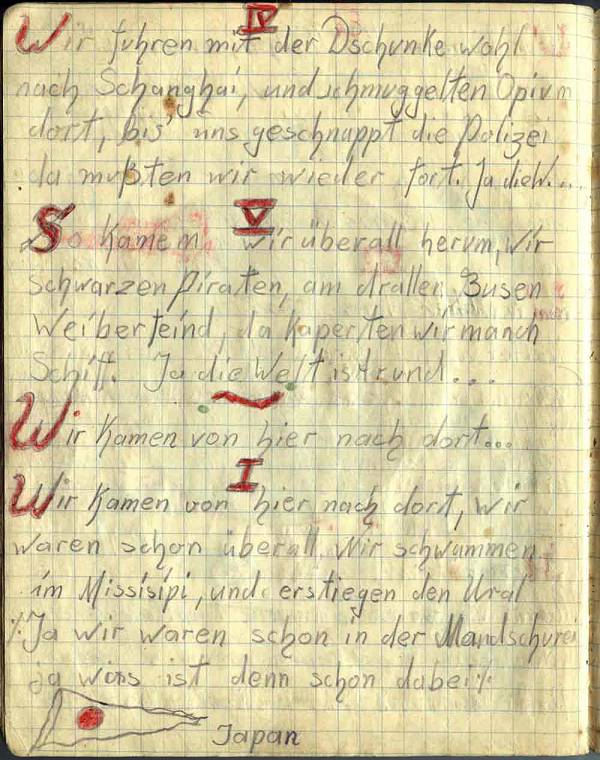 IV
Wir fuhren mit der Dschunke wohl
nach Schanghai, und schmuggelten Opium
dort, bis uns geschnappt die Polizei
da mußten wir wieder fort. Ja die W...
V
So kamen wir überall herum, wir
schwarzen Piraten, am draller Busen
Weiberfeind, da kaperten wir manch
Schiff. Ja die Welt ist rund...
~
Wir kamen von hier nach dort...
I
Wir kamen von hier nach dort, wir
waren schon überall, Wir schwammen
im Missisipi, und erstiegen den Ural
./. Ja wir waren schon in der Mandschurei
ja was ist denn schon dabei ./.
Japan